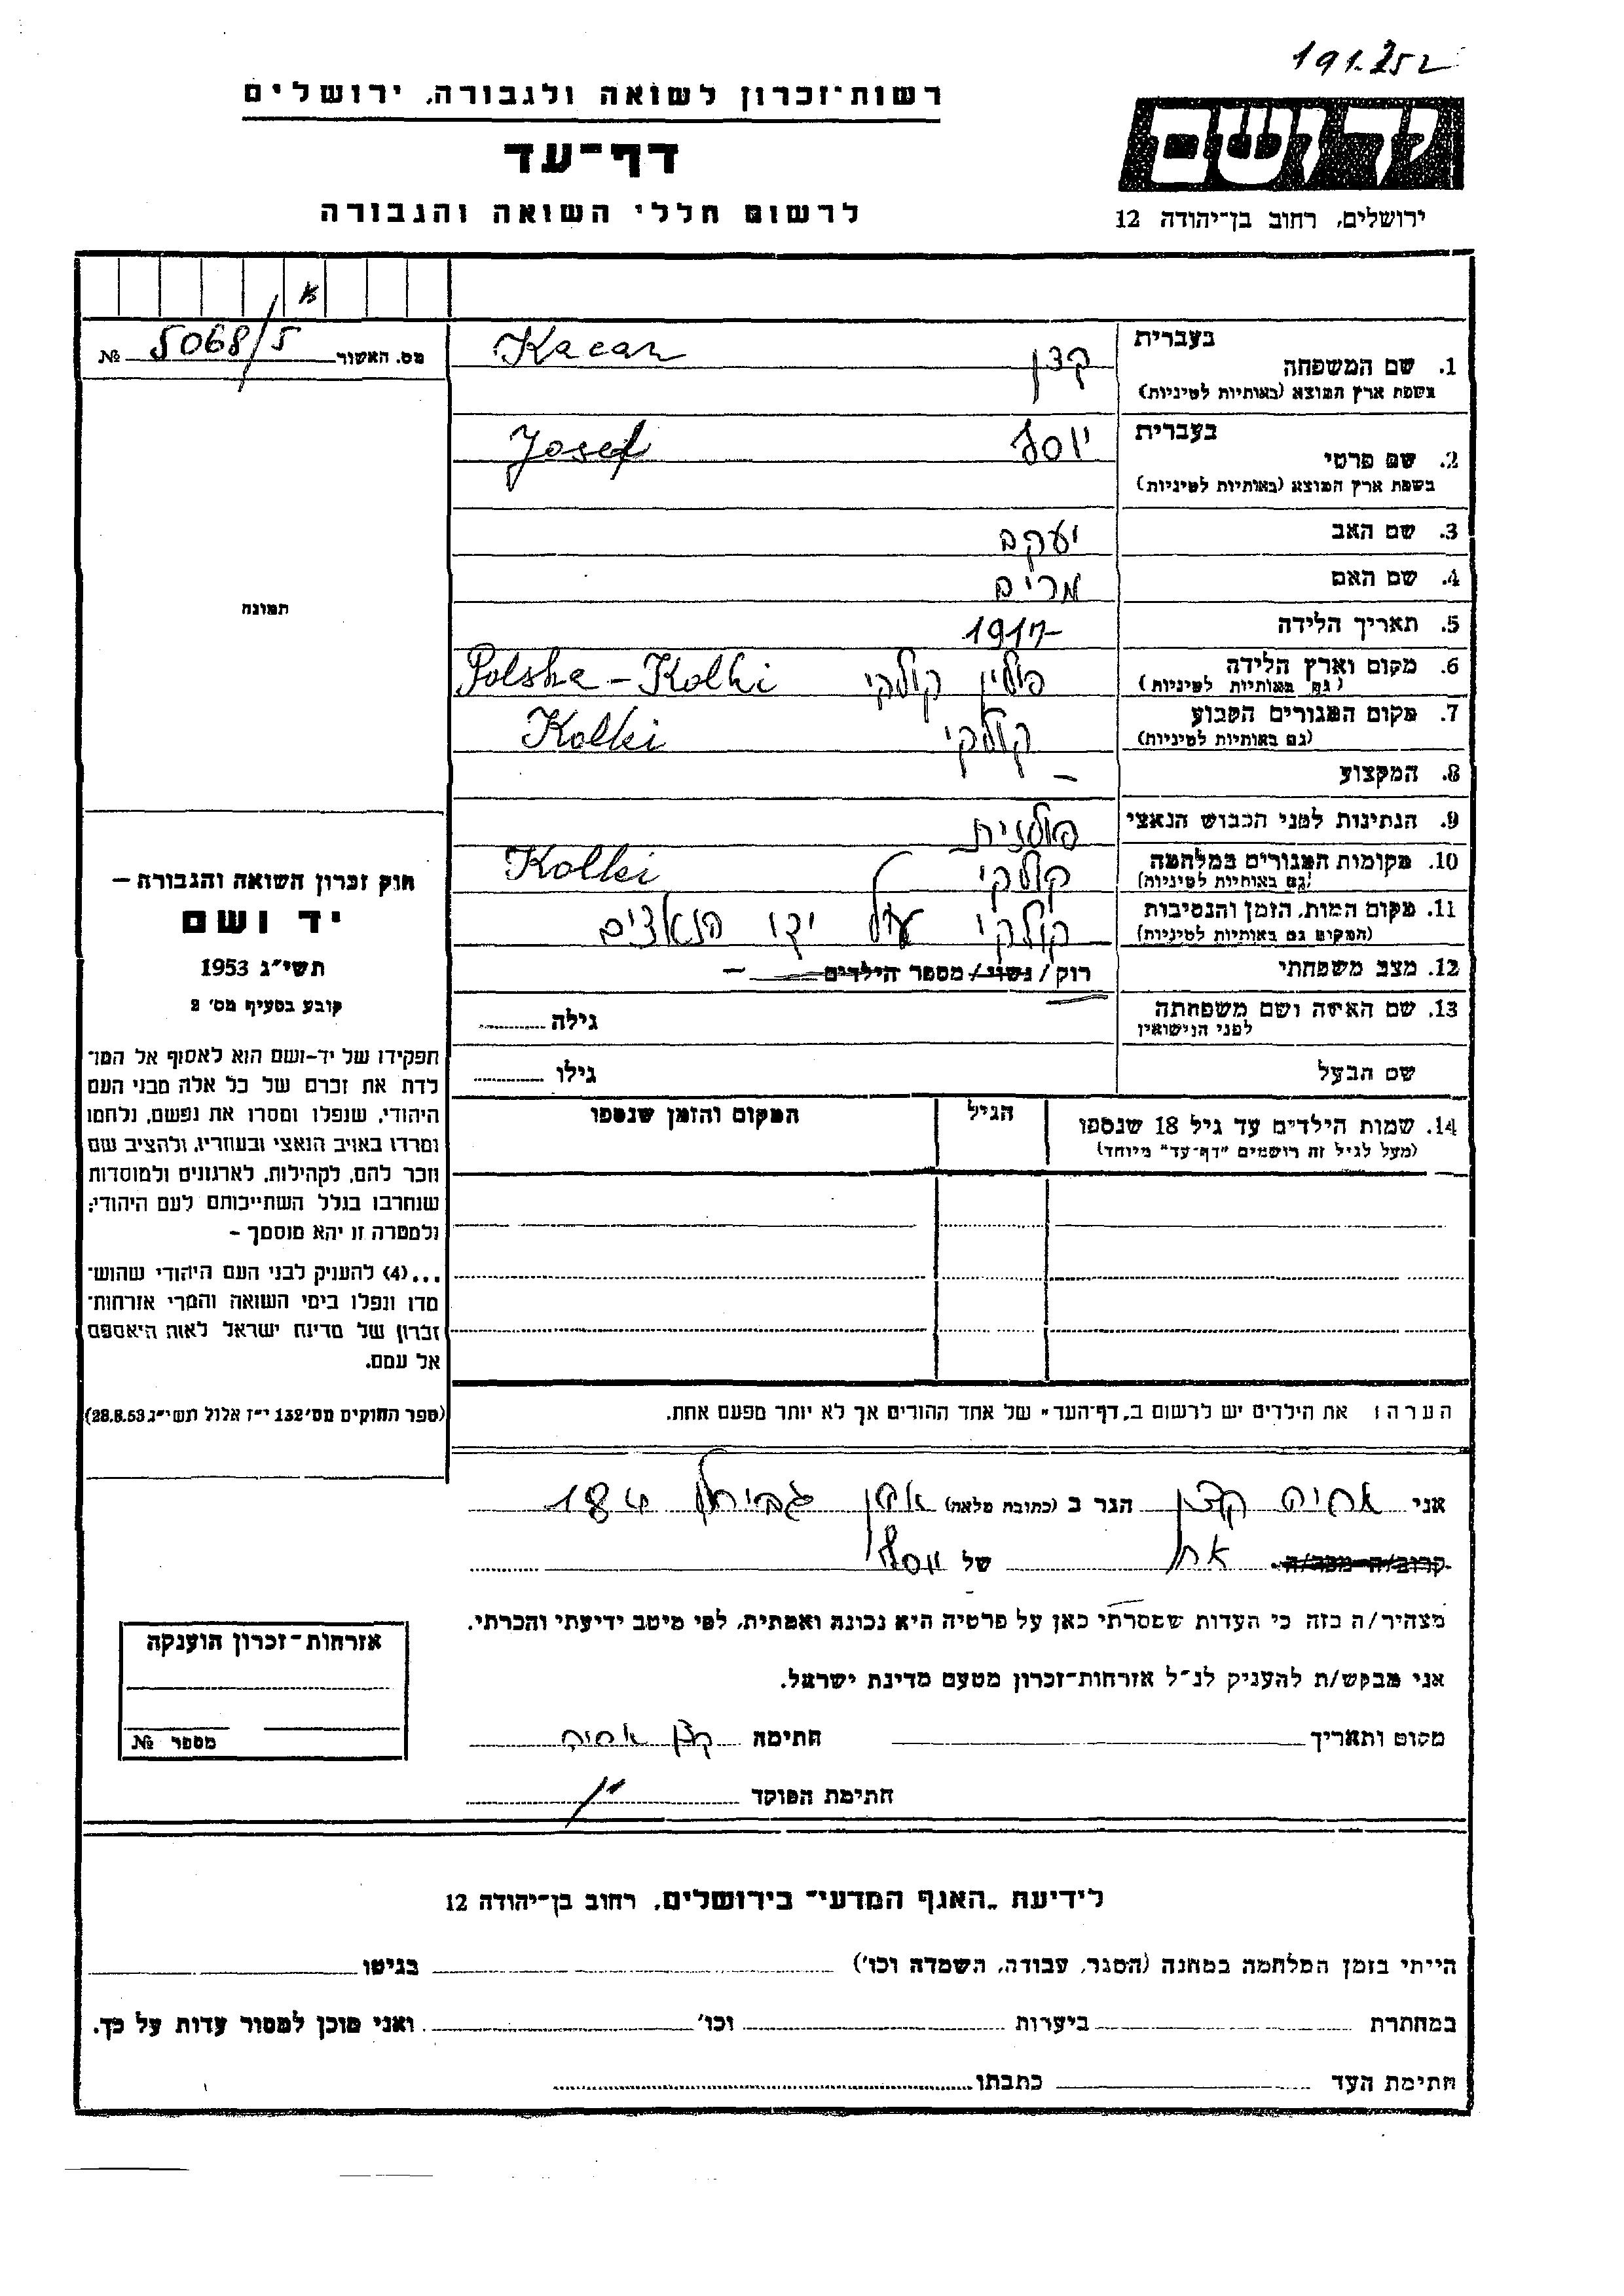 191.252
רשות־זכרון לשואה ולגבורה, ירושלים
יד ושם
דף־עד
לרשום חללי השואה והגבורה
ירושלים, רחוב בן־יהודה 12
מס. האשור 5068/5 №
בעברית
1. שם המשפחה קצן Kacan
בשפת ארץ המוצא (באותיות לטיניות)
בעברית
2. שם פרטי יוסף Josef
בשפת ארץ המוצא (באותיות לטיניות)
3. שם האב יעקב
4. שם האם מרים
5. תאריך הלידה 1917
6. מקום וארץ הלידה פולין קולקי Polska - Kolki
(גם באותיות לטיניות)
7. מקום המגורים הקבוע קולקי Kolki
(גם באותיות לטיניות)
8. המקצוע –
9. הנתינות לפני הכבוש הנאצי פולנית
10. מקומות המגורים במלחמה קולקי Kolki
(גם באותיות לטיניות)
11. מקום המות, הזמן והנסיבות קולקי על ידי הנאצים
(המקום גם באותיות לטיניות)
12. מצב משפחתי רוק / נשוי / מספר הילדים –
13. שם האשה ושם משפחתה גילה
לפני הנישואין
שם הבעל גילו
14. שמות הילדים עד גיל 18 שנספו הגיל המקום והזמן שנספו
(מעל לגיל זה רושמים "דף־עד" מיוחד)
תמונה
חוק זכרון השואה והגבורה –
יד ושם
תשי"ג 1953
קובע בסעיף מס' 2
תפקידו של יד-ושם הוא לאסוף אל המו־
לדת את זכרם של כל אלה מבני העם
היהודי, שנפלו ומסרו את נפשם, נלחמו
ומרדו באויב הנאצי ובעוזריו, ולהציב שם
וזכר להם, לקהילות, לארגונים ולמוסדות
שנחרבו בגלל השתייכותם לעם היהודי;
ולמטרה זו יהא מוסמך –
...(4) להעניק לבני העם היהודי שהוש־
מדו ונפלו בימי השואה והמרי אזרחות־
זכרון של מדינת ישראל לאות היאספם
אל עמם.
(ספר החוקים מס' 132 י"ז אלול תשי"ג 28.8.53)
הערה: את הילדים יש לרשום ב„דף־העד" של אחד ההורים אך לא יותר מפעם אחת.
אני אריה קצן הגר ב (כתובת מלאה) אבן גבירול 184
קרוב/ה מכר/ה אח של יוסף
מצהיר/ה בזה כי העדות שמסרתי כאן על פרטיה היא נכונה ואמתית, לפי מיטב ידיעתי והכרתי.
אני מבקש/ת להעניק לנ"ל אזרחות־זכרון מטעם מדינת ישראל.
מקום ותאריך חתימה קצן אריה
חתימת הפוקד
אזרחות־זכרון הוענקה
מספר №
לידיעת „האגף המדעי" בירושלים, רחוב בן־יהודה 12
הייתי בזמן המלחמה במחנה (הסגר, עבודה, השמדה וכו') בגיטו
במחתרת ביערות וכו' ואני מוכן למסור עדות על כך.
חתימת העד כתבתו